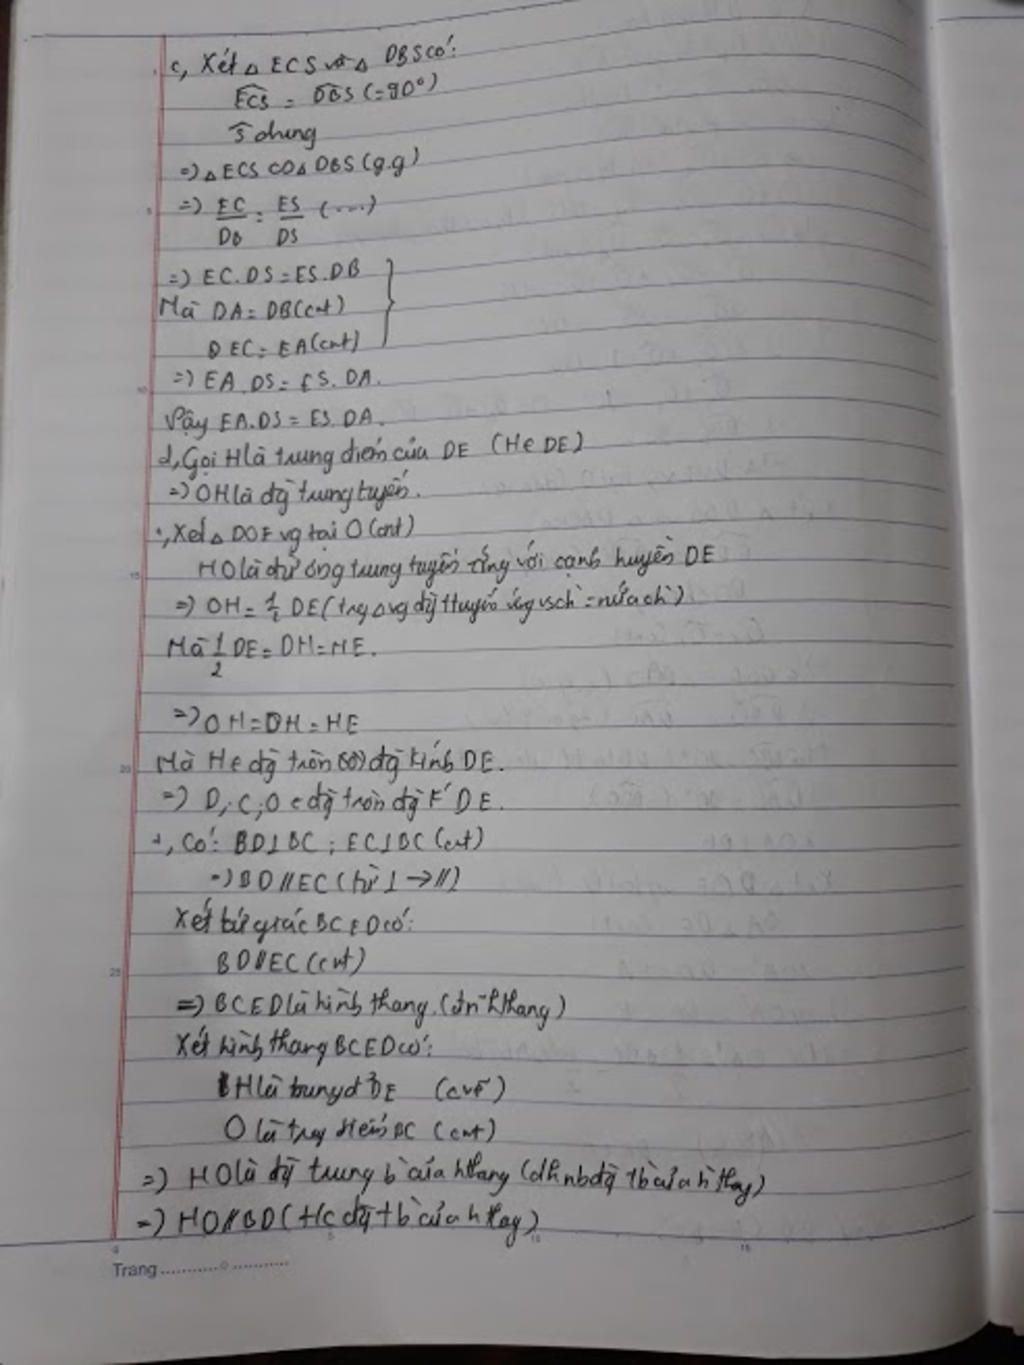 c, Xét △ ECS và △ DBS có:
ECS = DBS (=90°)
S chung
=> △ ECS ∽ △ DBS (g.g)
=> EC/DB = ES/DS (...)
=> EC.DS = ES.DB
Mà DA = DB (cmt)
EC = EA (cmt)
=> EA.DS = ES.DA.
Vậy EA.DS = ES.DA.
d, Gọi H là trung điểm của DE (H e DE)
=> OH là đg trung tuyến.
+, Xét △ DOE vg tại O (cmt)
HO là đường trung tuyến ứng với cạnh huyền DE
=> OH = 1/2 DE (trg △vg đg ttuyến ứng vs ch = nửa ch)
Mà 1/2 DE = DH = HE.
=> OH = DH = HE
Mà H e đg tròn đg kính DE.
=> D, C, O e đg tròn đg k' DE.
+, Có: BD⊥BC ; EC⊥BC (cmt)
=> BD//EC (từ ⊥ → //)
Xét tứ giác BCED có:
BD//EC (cmt)
=> BCED là hình thang. (đn hthang)
Xét hình thang BCED có:
H là trung đ' DE
O là trg điểm BC (cmt)
=> HO là đg trung b` của hthang (dhnb đg tb của h` thang)
=> HO//BD (t/c đg tb` của hthang)
Trang
5
10
15
20
25
0
5
10
15